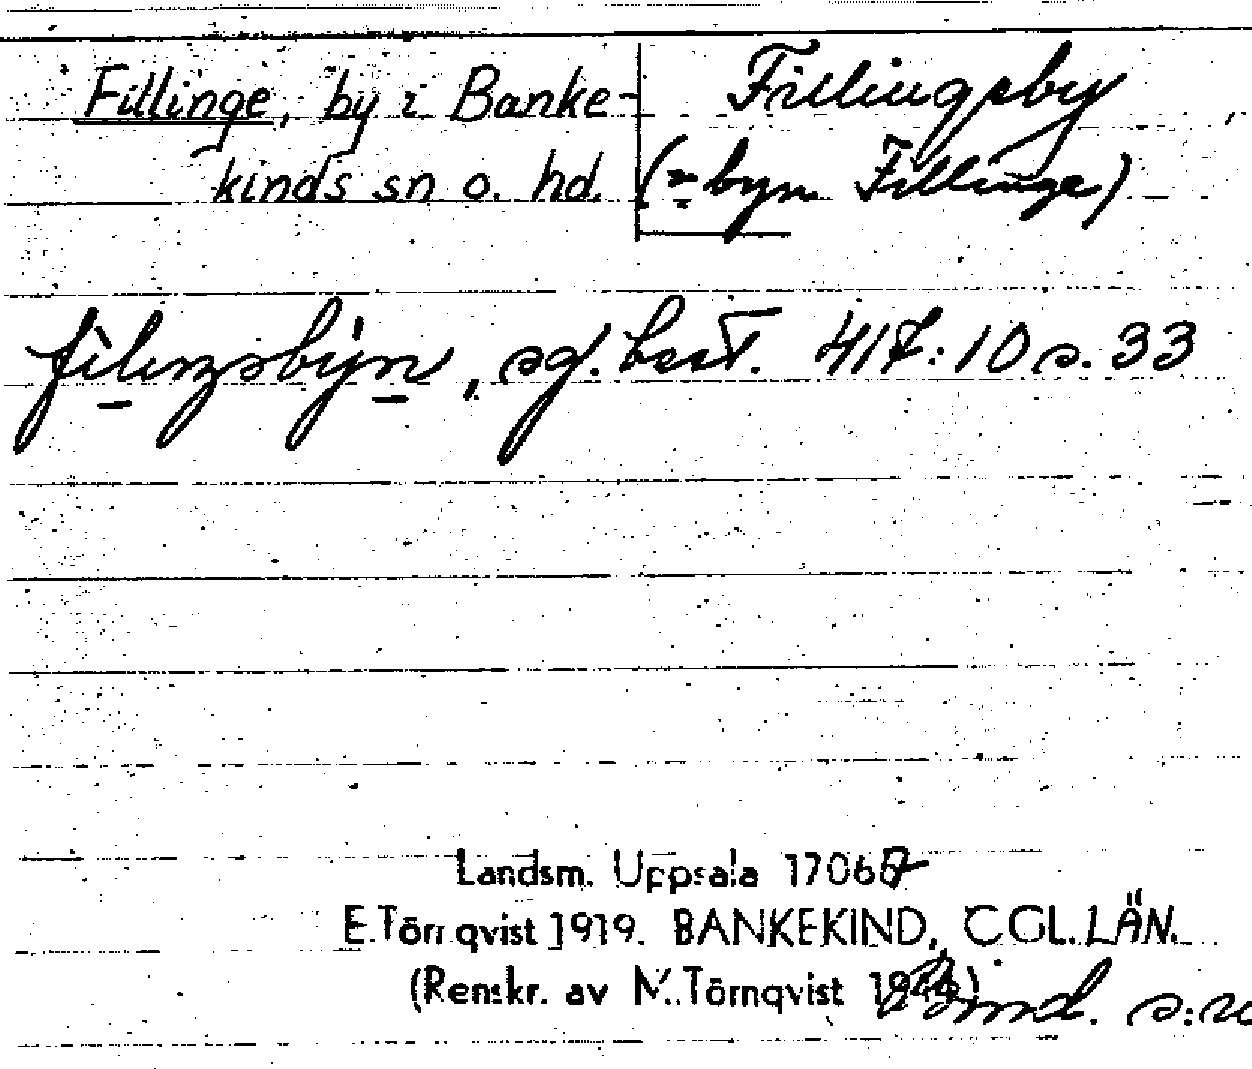 Fillinge, by i Banke-
kinds sn o. hd.
Fillingsby
(= byn Fillinge)
filiŋsbyn, sg. best. 417:10 s. 33
Landsm. Uppsala 17067
E. Törnqvist 1919. BANKEKIND, ÖGL. LÄN.
(Renskr. av M. Törnqvist